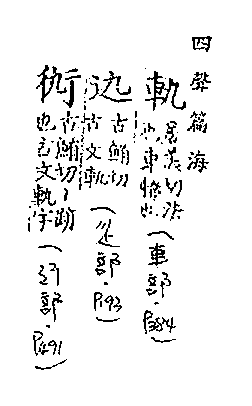 四聲篇海
軌居美切法
也車轍也(車部·P384)
𨒋古鮪切
古文軌(辵部·P193)
衏古鮪切跡
也古文軌字(行部·P491)